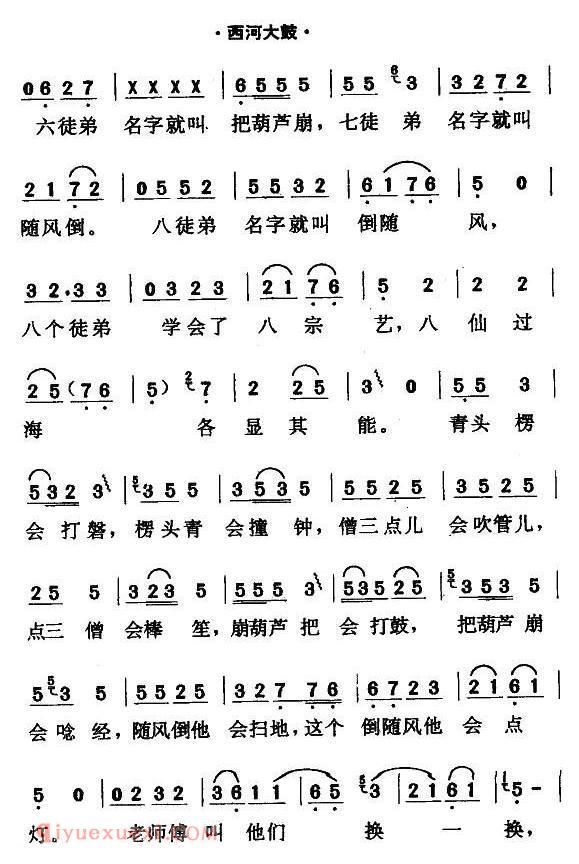 ·西河大鼓·
0 6 2 7 | X X X X | 6 5 5 5 5 | 5 5 6 3 | 3 2 7 2 |
六徒弟 名字就叫 把葫芦崩，七徒 弟 名字就叫
2 1 7 2 | 0 5 5 2 | 5 5 3 2 | 6 1 7 6 | 5 0 |
随风倒。 八徒弟 名字就叫 倒随 风，
3 2 · 3 3 | 0 3 2 3 | 2 1 7 6 | 5 2 | 2 2 |
八个徒弟 学会了 八宗 艺，八 仙过
2 5 (7 6 | 5) 2 7 | 2 2 5 | 3 0 | 5 5 3 |
海 各 显 其 能。 青头 楞
5 3 2 3 | 5 3 5 5 | 5 3 5 3 | 5 5 2 5 | 3 5 2 5 |
会 打磬，楞头青 会撞 钟，僧三点儿 会吹管儿，
2 5 5 | 3 2 3 5 | 5 5 5 3 | 5 3 5 2 2 | 5 5 5 5 |
点三 僧 会棒 笙，崩葫芦 把 会 打鼓， 把葫芦 崩
5 5 3 5 | 5 5 2 5 | 3 2 7 7 6 | 6 7 2 3 | 2 1 6 1 |
会 唸 经，随风倒他 会扫地，这个 倒随风他 会 点
5 0 | 0 2 3 2 | 3 6 1 1 | 6 5 5 3 | 2 1 6 1 | 1 5 - |
灯。 老师傅 叫 他们 换 一 换，
jiyuexuexi.com